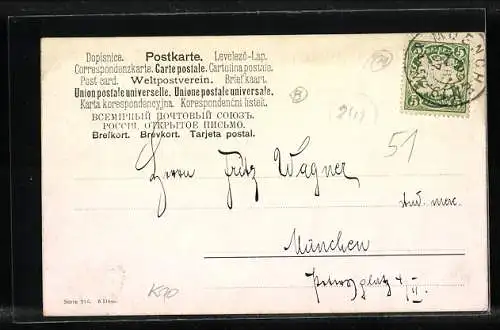 Dopisnice. Postkarte. Levelező-Lap.
Correspondenzkarte. Carte postale. Cartolina postale.
Post card. Weltpostverein. Briefkaart.
Union postale universelle. Unione postale universale.
Karta korespondencyjna. Korespondenční lístek.
ВСЕМІРНЫЙ ПОЧТОВЫЙ СОЮЗЪ.
РОССІЯ. ОТКРЫТОЕ ПИСЬМО.
Brefkort. Brevkort. Tarjeta postal.
5
51
Herrn Fritz Wagner
stud. merc.
München
Petersplatz 4/II.
K10